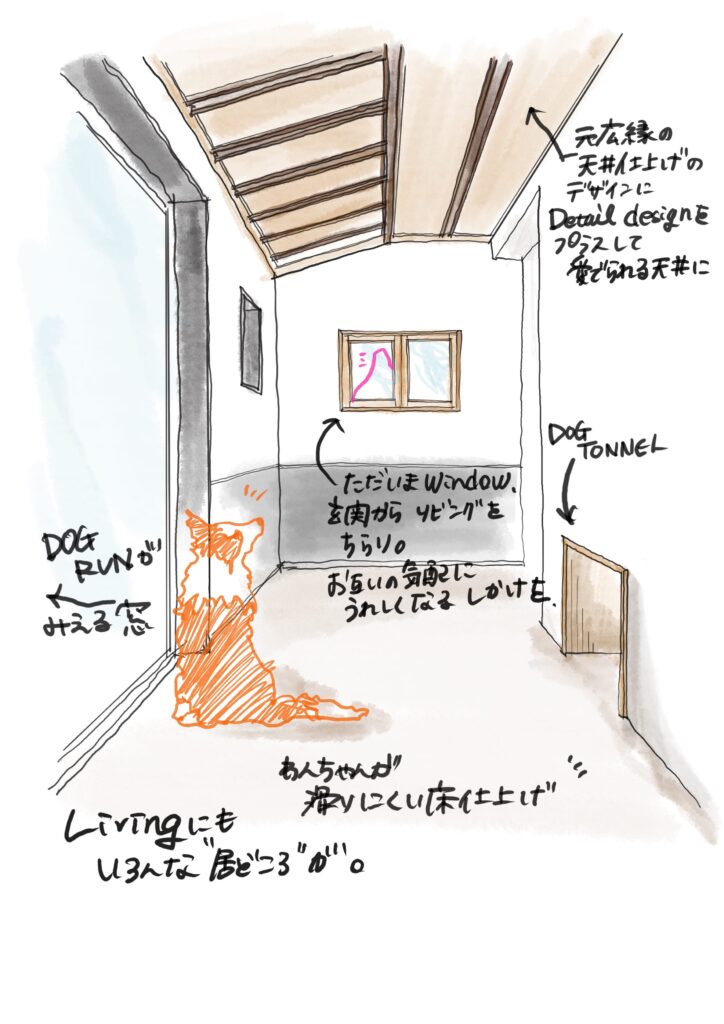 元広縁の
天井仕上げの
デザインに
Detail designを
プラスして
愛でられる天井に
DOG
TONNEL
ただいまwindow、
玄関から リビングを
ちらり。
お互いの気配に
うれしくなる しかけを、
DOG
RUNが
みえる窓
わんちゃんが
滑りにくい床仕上げ
Livingにも
いろんな"居どころ"が。